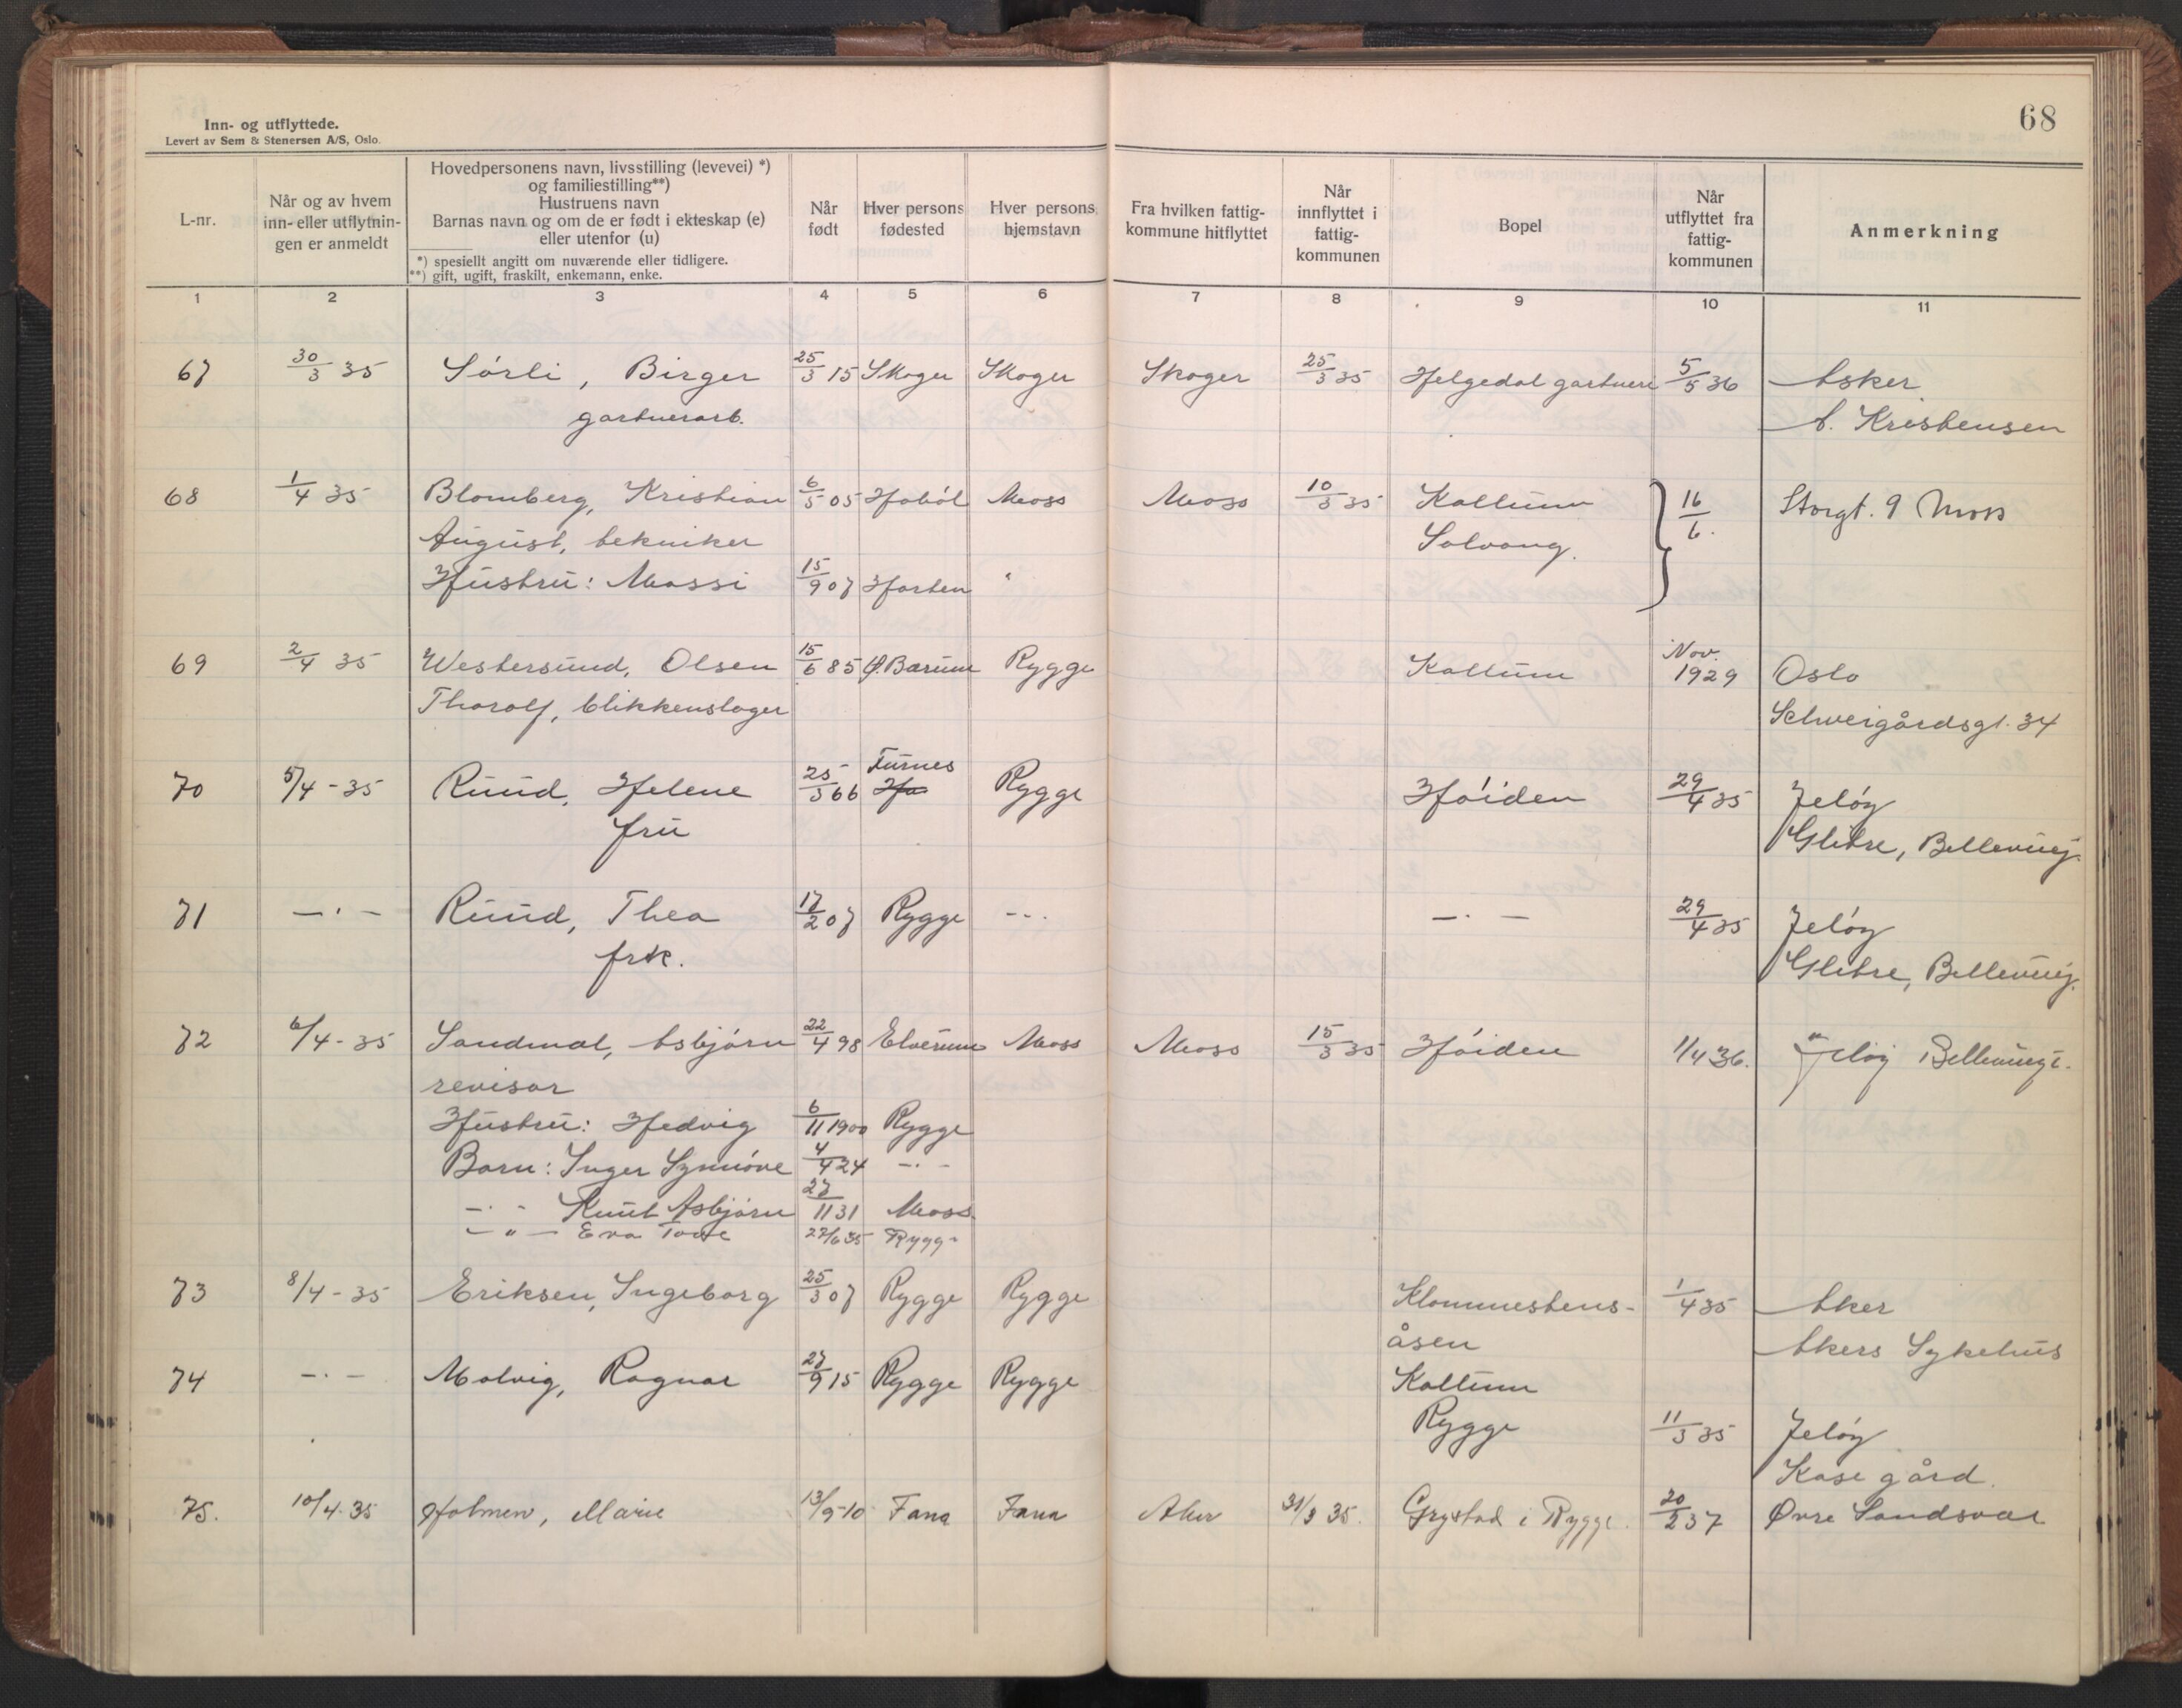 68
Inn- og utflyttede.
Levert av Sem & Stenersen A/S, Oslo.
L-nr.
Når og av hvem
inn- eller utflytnin-
gen er anmeldt
Hovedpersonens navn, livsstilling (levevei) *)
og familiestilling**)
Hustruens navn
Barnas navn og om de er født i ekteskap (e)
eller utenfor (u)
*) spesiellt angitt om nuværende eller tidligere.
**) gift, ugift, fraskilt, enkemann, enke.
Når
født
Hver persons
fødested
Hver persons
hjemstavn
Fra hvilken fattig-
kommune hitflyttet
Når
innflyttet i
fattig-
kommunen
Bopel
Når
utflyttet fra
fattig-
kommunen
Anmerkning
1 2 3 4 5 6 7 8 9 10 11
67 30/3 35 Sórli, Birger 25/3 15 Skoger Skoger Skoger 25/3 35 Helgedal gartneri 5/5 36 Asker
gartnerarb. A. Kristensen
68 1/4 35 Blomberg, Kristian 6/5 05 Hoból Moss Moss 10/3 35 Kallum 16/6. Storgt. 9 Moss
August, tekniker Solvang.
Hustru: Massi 15/9 07 Horten "
69 2/4 35 Westersund, Olsen 15/6 85 Ø. Bærum Rygge Kallum Nov. 1929 Oslo
Thorolf, blikkenslager Schweigårdsgt. 34
70 5/4 - 35 Ruud, Helene 25/3 66 Furnes Rygge Hóiden 29/4 35 Jelóy
fru Glitre, Bellevuej.
71 — . — Ruud, Thea 17/2 07 Rygge - . . — . — 29/4 35 Jelóy
frk. Glitre, Bellevuej.
72 6/4 - 35 Sandmæl, Asbjórn 22/4 98 Elverum Moss Moss 15/3 35 Hóiden 1/4 36. Jelóy
revisor
Hustru: Hedvig 6/11 1900 Rygge
Barn: Inger Synnóve 4/4 24 — . —
— . — Knut Asbjórn 27/11 31 Moss.
— " — Eva Tove 27/6 35 Rygge
73 8/4 - 35 Eriksen, Ingeborg 25/3 07 Rygge Rygge Klommestens- 1/4 35 Aker
åsen Akers Sykehus
74 — . — Malvig, Ragnar 27/9 15 Rygge Rygge Kallum
Rygge 11/3 35 Jelóy
Kase gård.
75. 10/4. 35 Holmen, Marie 13/9-10 Fana Fana Aker 31/3 35. Grystad i Rygge. 20/2 37 Øvre Sandsvær